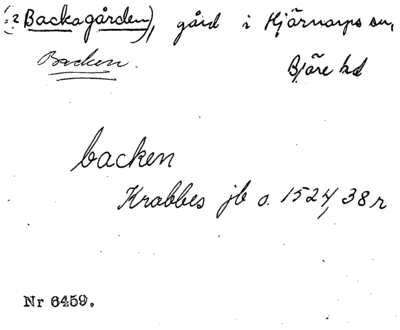 (2 Backagården), gård i Hjärnarps sn,
Backen.
Bjäre hd
backen
Krabbes jb o. 1524, 38 r
Nr 6459.